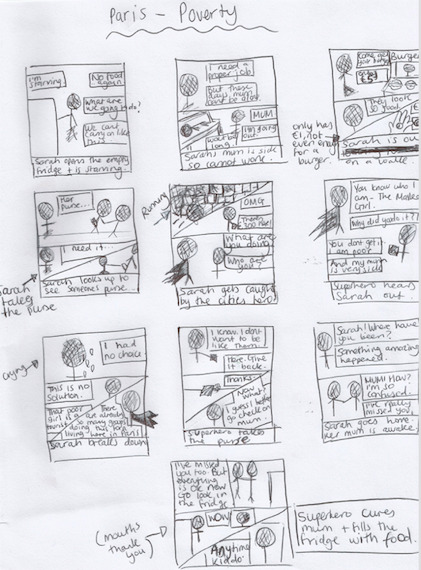 Paris - Poverty
I'm starving.
No food again.
What are we going to do?
We can't carry on like this
Sarah opens the empty fridge + is starving.
I need a proper job
But these days mum can't be alone.
MUM
I'm going out
won't be long
Sarah's mum is sick so cannot work.
Come get your burgers
Burger
They look so good
only has £1, not even enough for a burger.
Sarah is out on a walk.
Her purse...
I need it.
Sarah looks up to see someone's purse...
Sarah takes the purse
Running
OMG
There's 300 here!
What are you doing?
Who are you?
Sarah gets caught by the cities hero
You know who I am - The Masked Girl.
Why did you do it??
You don't get it. I am poor
And my mum is very sick
Superhero hears Sarah out.
Crying
I had no choice.
This is no solution.
That poor girl
There are already so many
doing this
living here in Paris
Sarah breaks down
I know. I don't want to be like them.
Here. Give it back.
Thanks.
Now what?
I guess I better go check on mum.
Superhero takes the purse
Sarah! Where have you been?
Something amazing happened.
MUM! How? I'm so confused.
I've really missed you
Sarah goes home + her mum is awake.
I've missed you too. But everything is ok now. Go look in the fridge
WOW
Anytime kiddo.
(mouths thank you)
Superhero cures mum + fills the fridge with food.